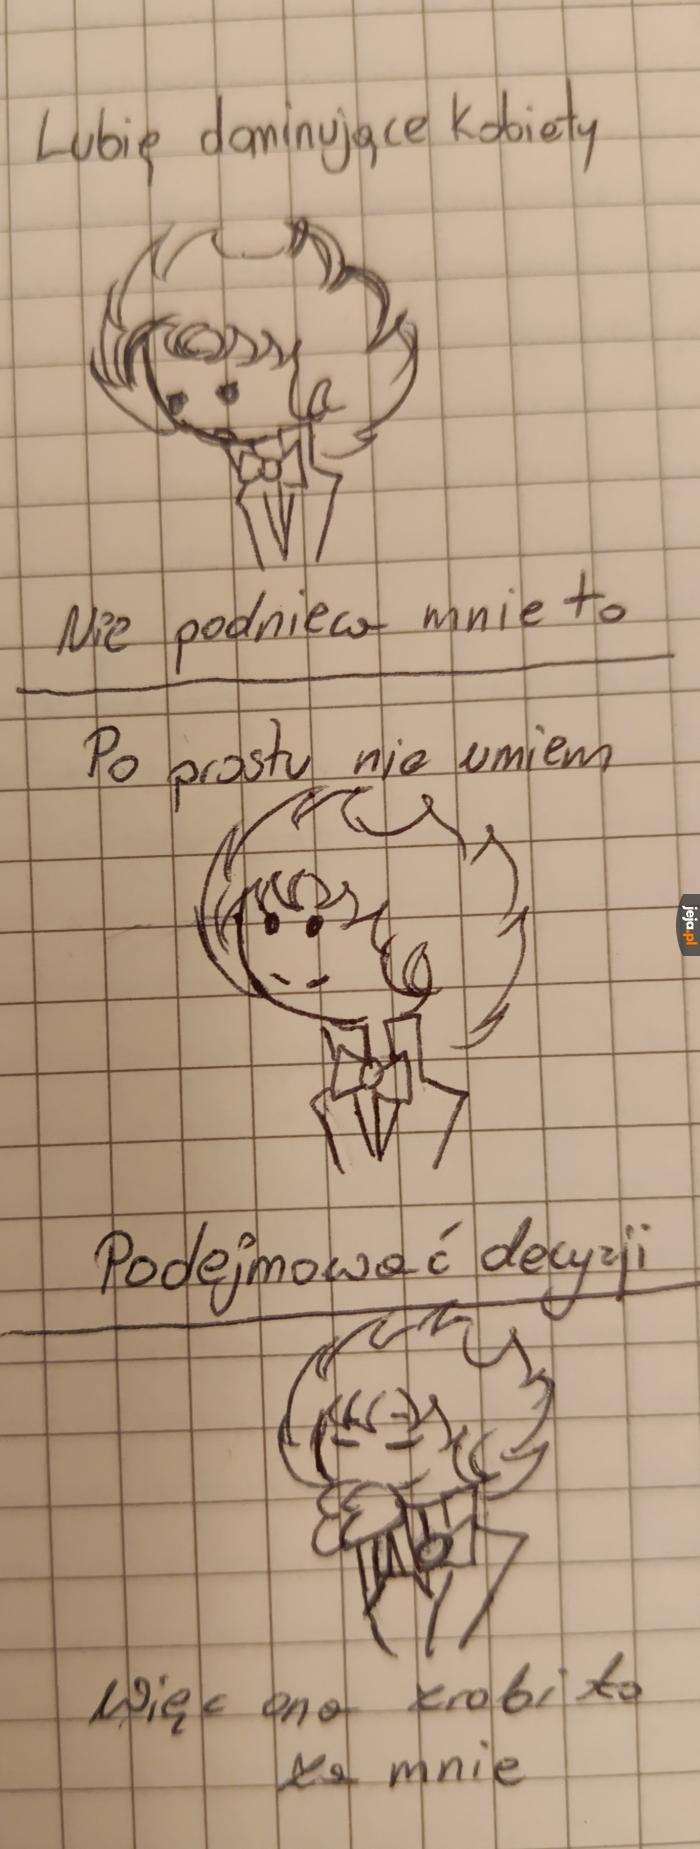 Lubię dominujące kobiety
Nie podnieca mnie to
Po prostu nie umiem
Podejmować decyzji
Więc ona zrobi to
za mnie
jeja.pl